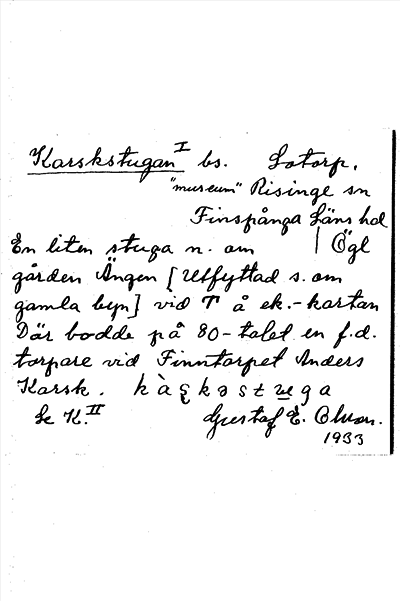 Karskstugan I bs. Lotorp.
"museum" Risinge sn
Finspånga Läns hd
En liten stuga n. om | Ögl
gården Ängen [Utflyttad s. om
gamla byn] vid T å ek.-kartan
Där bodde på 80-talet en f.d.
torpare vid Finntorpet Anders
Karsk.
Se K. II Gustaf E. Olson.
1933